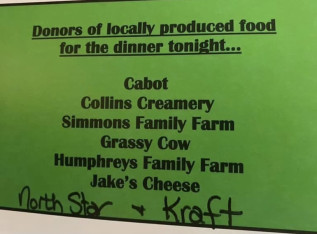 Donors of locally produced food
for the dinner tonight...
Cabot
Collins Creamery
Simmons Family Farm
Grassy Cow
Humphreys Family Farm
Jake's Cheese
North Star + Kraft